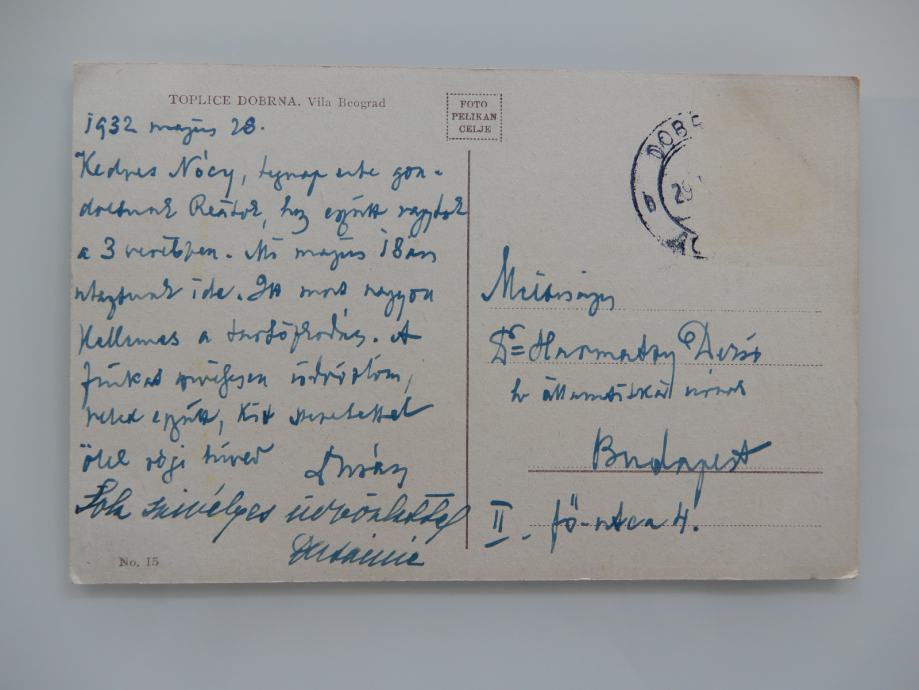 TOPLICE DOBRNA. Vila Beograd
FOTO
PELIKAN
CELJE
1932 május 28.
Kedves Nócy, tegnap este gon-
doltunk Reátok, hogy együtt vagytok
a 3 verébben. Mi május 18án
utaztunk ide. Itt most nagyon
kellemes a tartózkodás. A
fiúkat szívélyesen üdvözlöm,
veled együtt, kit szeretettel
ölel régi híved
Sok szívélyes üdvözlettel
No. 15
DOBR
29
b
Méltóságos
Dr= Harmatzy Dezső
h. államtitkár úrnak
Budapest
II. fő-utca 4.